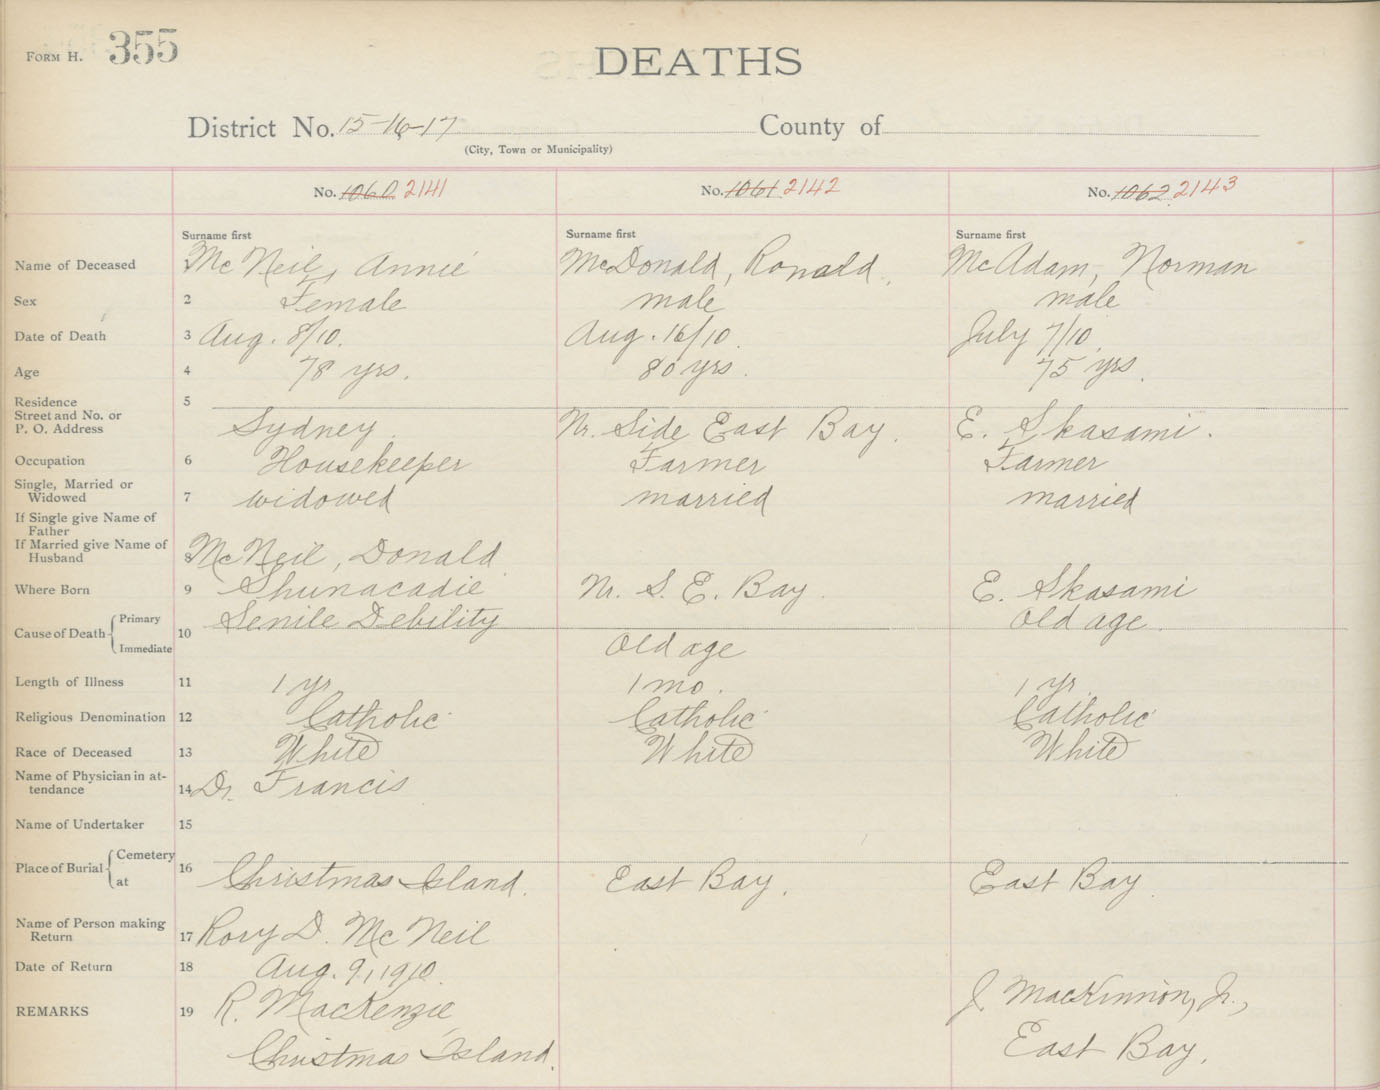 FORM H. 355
DEATHS
District No. 15-16-17 County of
(City, Town or Municipality)
No. 1060 2141 No. 1061 2142 No. 1062 2143
Surname first Surname first Surname first
Name of Deceased 1 McNeil, Annie McDonald, Ronald. McAdam, Norman
Sex 2 Female male male
Date of Death 3 Aug. 8/10. Aug. 16/10. July 7/10.
Age 4 78 yrs. 80 yrs. 75 yrs.
Residence 5
Street and No. or
P. O. Address Sydney. Nr. Side East Bay. E. Skasami.
Occupation 6 Housekeeper Farmer Farmer
Single, Married or
Widowed 7 widowed married married
If Single give Name of
Father
If Married give Name of
Husband 8 McNeil, Donald
Where Born 9 Shunacadie Nr. S. E. Bay. E. Skasami
Cause of Death { Primary Senile Debility Old age.
10
Immediate Old age
Length of Illness 11 1 yr 1 mo. 1 yr.
Religious Denomination 12 Catholic Catholic Catholic
Race of Deceased 13 White White White
Name of Physician in at-
tendance 14 Dr. Francis
Name of Undertaker 15
Place of Burial { Cemetery
16
at Christmas Island. East Bay. East Bay.
Name of Person making
Return 17 Rory D. McNeil
Date of Return 18 Aug. 9, 1910.
REMARKS 19 R. MacKenzie J. MacKinnon, Jr.,
Christmas Island. East Bay.